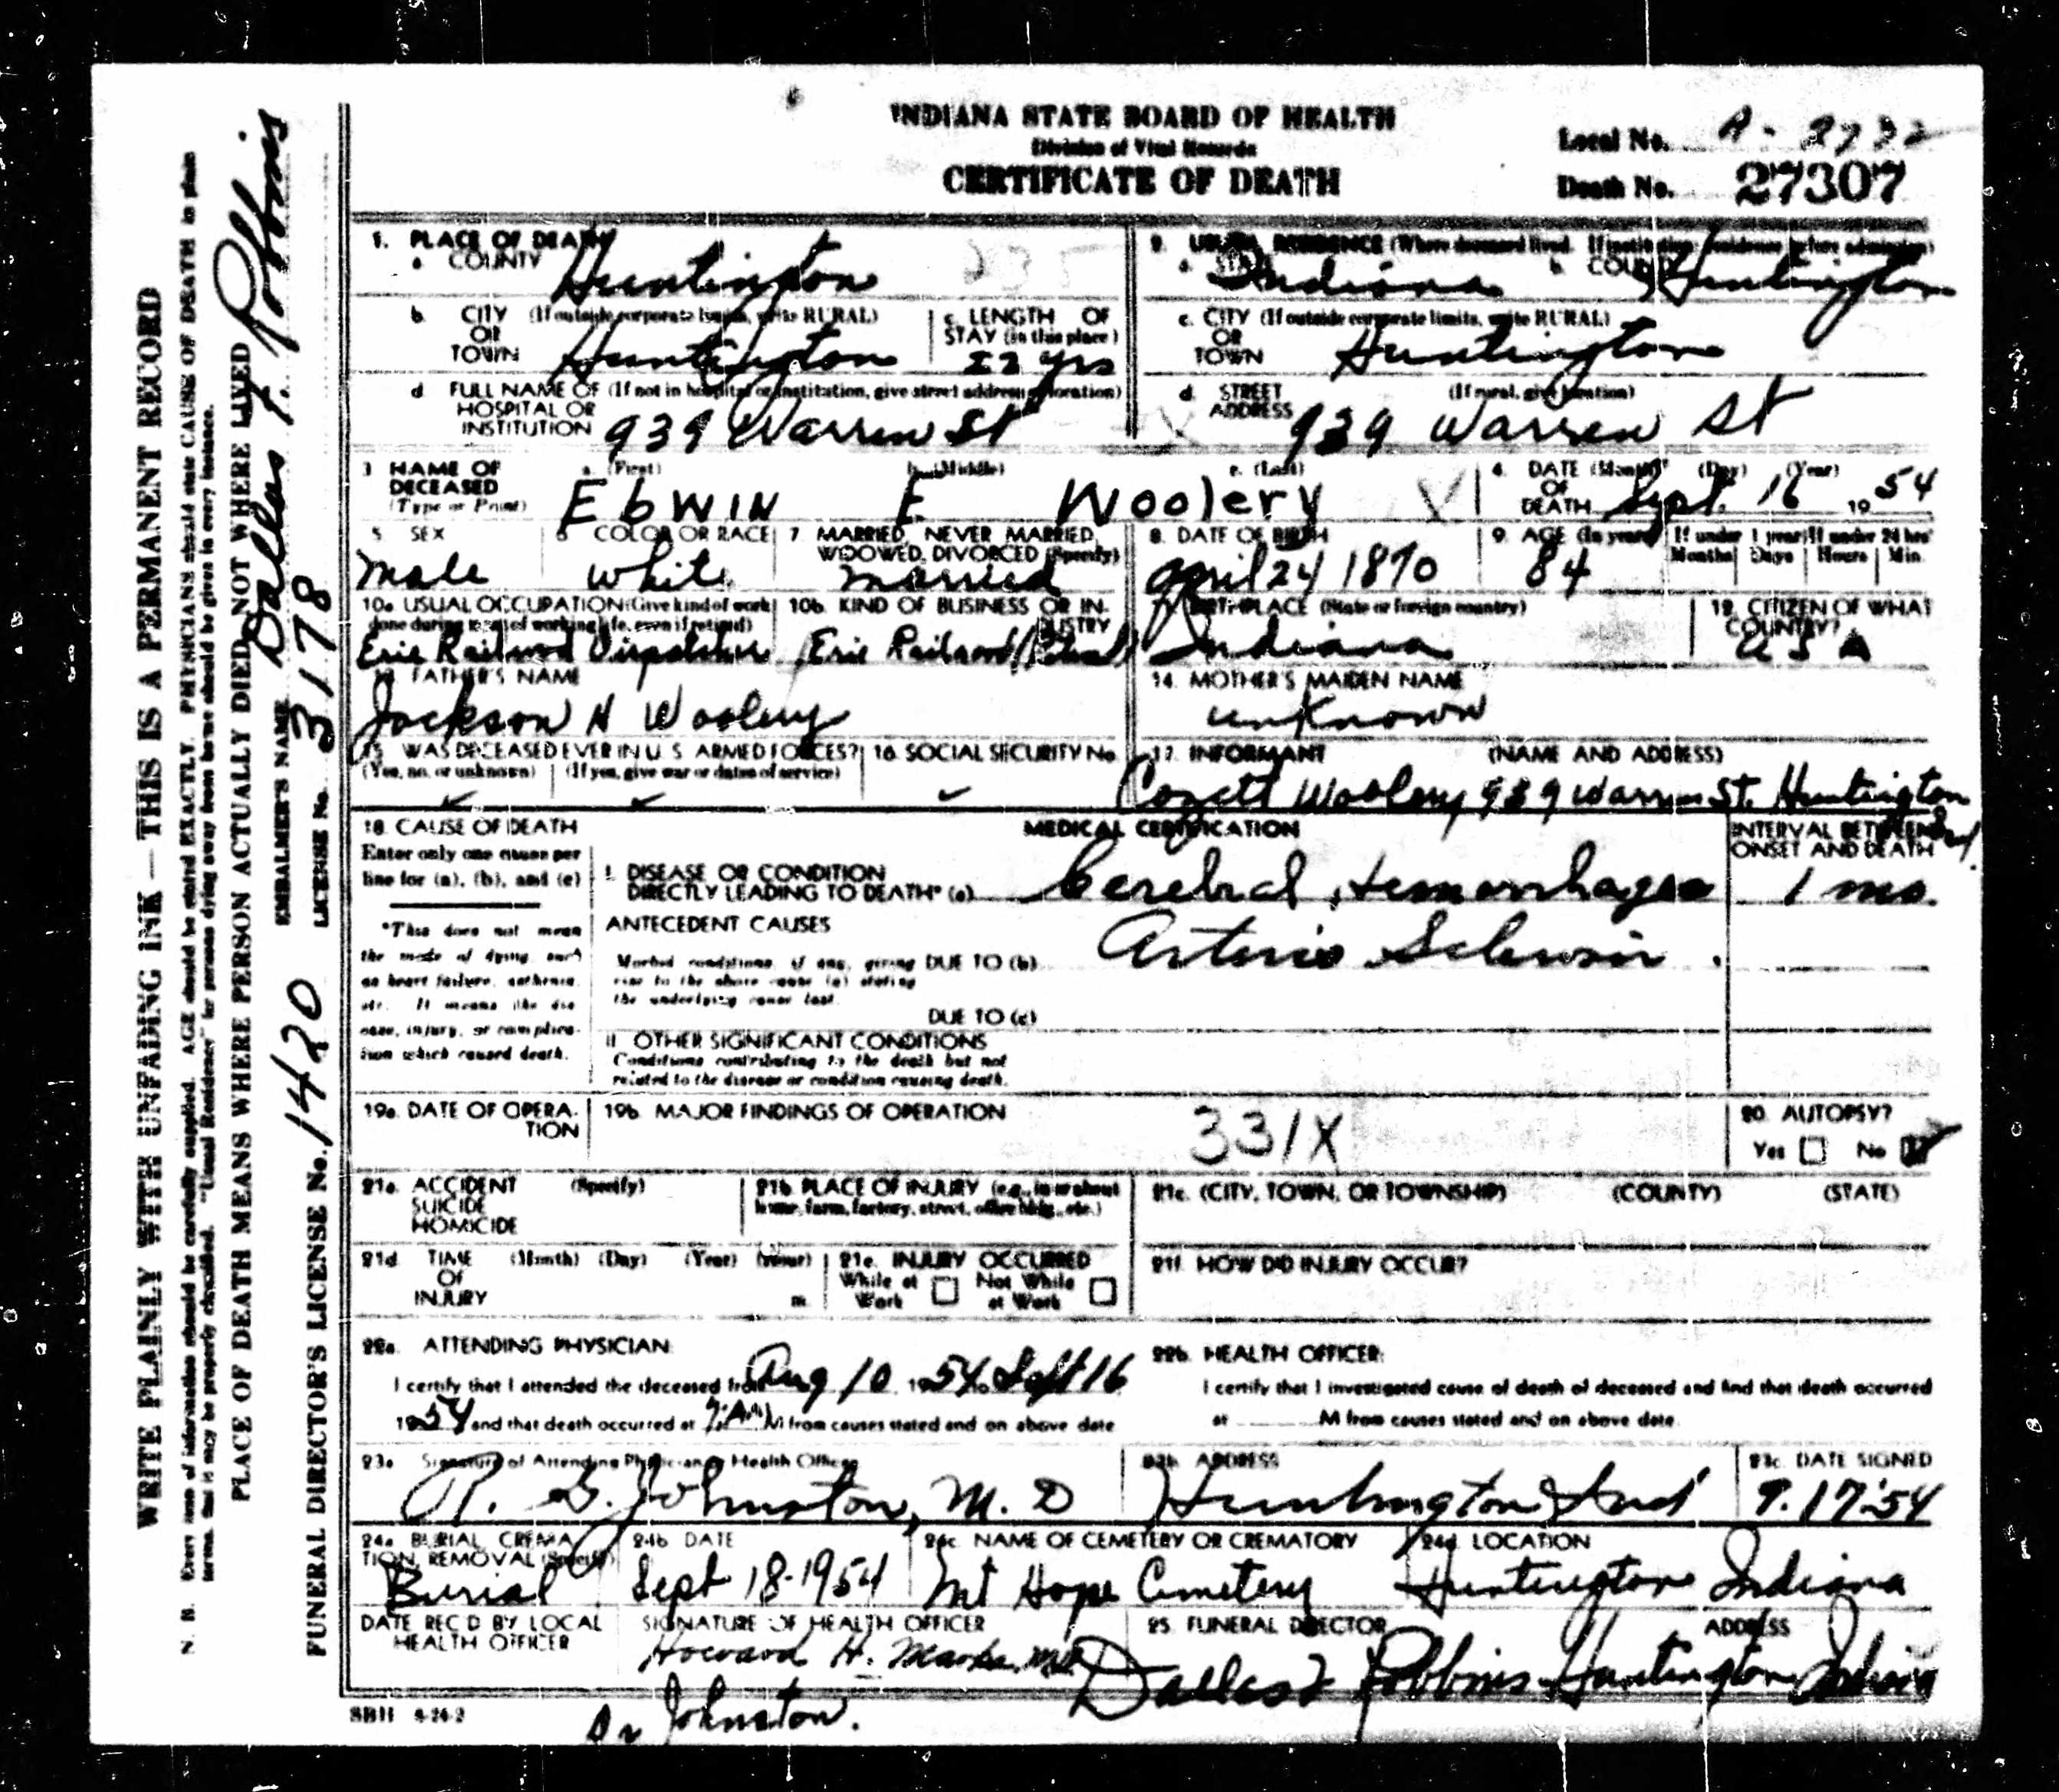 INDIANA STATE BOARD OF HEALTH
Division of Vital Records
CERTIFICATE OF DEATH
Local No. A-2732
Death No. 27307
1. PLACE OF DEATH
a. COUNTY Huntington 235
2. USUAL RESIDENCE (Where deceased lived. If institution: residence before admission)
a. STATE Indiana b. COUNTY Huntington
b. CITY (If outside corporate limits, write RURAL) OR TOWN Huntington
c. LENGTH OF STAY (in this place) 22 yrs
c. CITY (If outside corporate limits, write RURAL) OR TOWN Huntington
d. FULL NAME OF (If not in hospital or institution, give street address or location) HOSPITAL OR INSTITUTION 939 Warren St
d. STREET ADDRESS (If rural, give location) 939 Warren St
3. NAME OF DECEASED (Type or Print)
a. (First) b. (Middle) c. (Last)
EDWIN E Woolery
4. DATE OF DEATH (Month) (Day) (Year) Sept. 16 1954
5. SEX Male
6. COLOR OR RACE White
7. MARRIED, NEVER MARRIED, WIDOWED, DIVORCED (Specify) Married
8. DATE OF BIRTH April 24 1870
9. AGE (In years) 84
If under 1 year Months Days
If under 24 hrs Hours Min.
10a. USUAL OCCUPATION (Give kind of work done during most of working life, even if retired) Erie Railroad Dispatcher
10b. KIND OF BUSINESS OR INDUSTRY Erie Railroad (Retired)
11. BIRTHPLACE (State or foreign country) Indiana
12. CITIZEN OF WHAT COUNTRY? USA
13. FATHER'S NAME Jackson H Woolery
14. MOTHER'S MAIDEN NAME unknown
15. WAS DECEASED EVER IN U. S. ARMED FORCES?
(Yes, no, or unknown) (If yes, give war or dates of service)
16. SOCIAL SECURITY No.
17. INFORMANT (NAME AND ADDRESS)
Cozett Woolery 939 Warren St. Huntington Ind.
18. CAUSE OF DEATH
Enter only one cause per line for (a), (b), and (c)
*This does not mean the mode of dying, such as heart failure, asthenia, etc. It means the disease, injury, or complication which caused death.
MEDICAL CERTIFICATION
INTERVAL BETWEEN ONSET AND DEATH
I. DISEASE OR CONDITION DIRECTLY LEADING TO DEATH* (a) Cerebral Hemorrhage 1 mo.
ANTECEDENT CAUSES
Morbid conditions, if any, giving rise to the above cause (a) stating the underlying cause last.
DUE TO (b) Arterio Sclerosis.
DUE TO (c)
II. OTHER SIGNIFICANT CONDITIONS
Conditions contributing to the death but not related to the disease or condition causing death.
19a. DATE OF OPERATION
19b. MAJOR FINDINGS OF OPERATION
331X
20. AUTOPSY?
Yes No
21a. ACCIDENT SUICIDE HOMICIDE (Specify)
21b. PLACE OF INJURY (e.g., in or about home, farm, factory, street, office bldg., etc.)
21c. (CITY, TOWN, OR TOWNSHIP) (COUNTY) (STATE)
21d. TIME OF INJURY (Month) (Day) (Year) (Hour) m.
21e. INJURY OCCURRED
While at Work Not While at Work
21f. HOW DID INJURY OCCUR?
22a. ATTENDING PHYSICIAN:
I certify that I attended the deceased from Aug 10 1954 to Sept 16
1954 and that death occurred at M from causes stated and on above date
22b. HEALTH OFFICER:
I certify that I investigated cause of death of deceased and find that death occurred
at M from causes stated and on above date.
23a. Signature of Attending Physician or Health Officer
R. G. Johnston, M. D
23b. ADDRESS Huntington Ind
23c. DATE SIGNED 9.17.54
24a. BURIAL, CREMATION, REMOVAL (Specify) Burial
24b. DATE Sept 18-1954
24c. NAME OF CEMETERY OR CREMATORY Mt Hope Cemetery
24d. LOCATION Huntington Indiana
DATE REC'D BY LOCAL HEALTH OFFICER
SIGNATURE OF HEALTH OFFICER Howard H. Marks, MD
25. FUNERAL DIRECTOR ADDRESS
Dallas F Robbins Huntington Indiana
SBH 4-24-2
Dr Johnston.
WRITE PLAINLY WITH UNFADING INK—THIS IS A PERMANENT RECORD
N. B. Every item of information should be carefully supplied. AGE should be stated EXACTLY. PHYSICIANS should state CAUSE OF DEATH in plain
terms, that it may be properly classified. "Usual Residence" for persons dying away from home should be given in every instance.
PLACE OF DEATH MEANS WHERE PERSON ACTUALLY DIED, NOT WHERE LIVED
EMBALMER'S NAME Dallas F. Robbins
LICENSE No. 3178
FUNERAL DIRECTOR'S LICENSE No. 1420